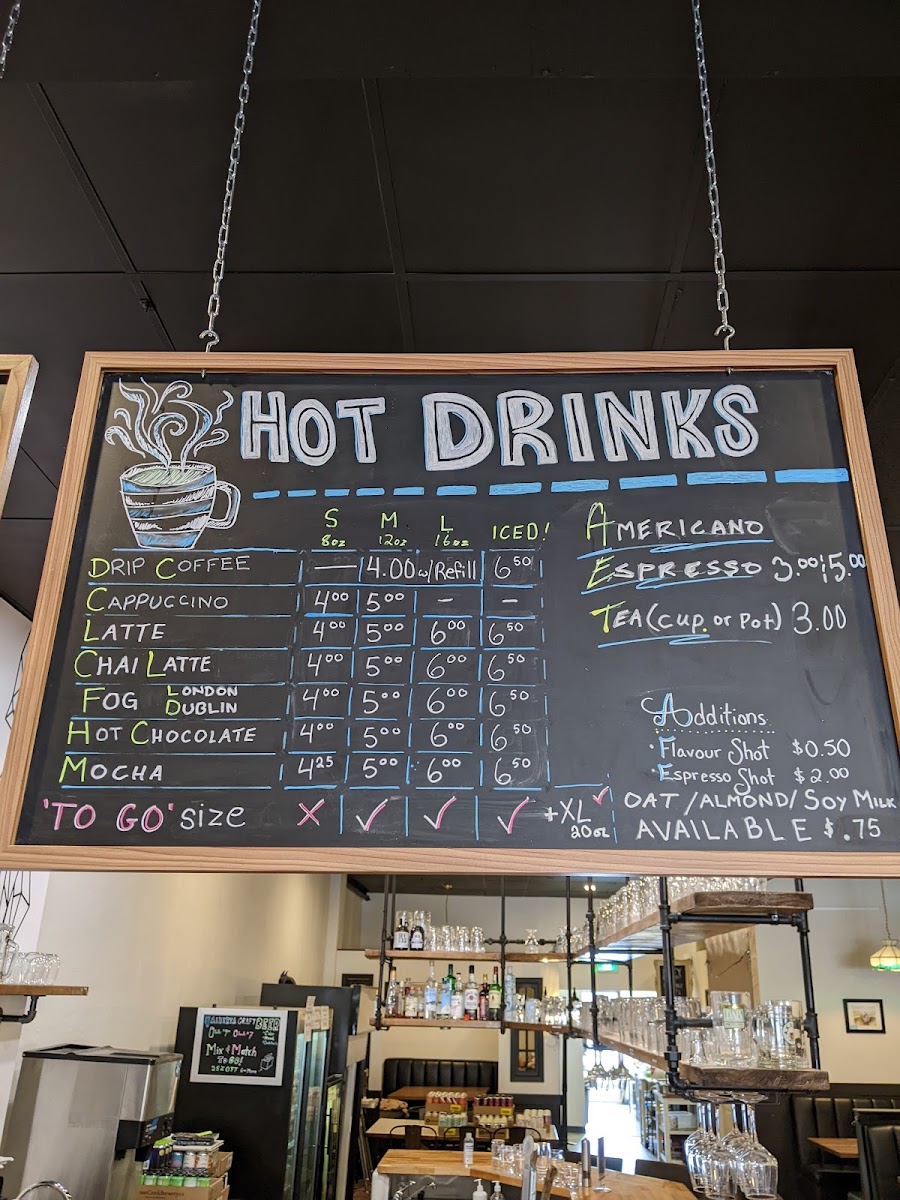 HOT DRINKS
S M L ICED!
8oz 12oz 16oz
DRIP COFFEE — 4.00 w/Refill 6.50
CAPPUCCINO 4.00 5.00 – –
LATTE 4.00 5.00 6.00 6.50
CHAI LATTE 4.00 5.00 6.00 6.50
FOG LONDON DUBLIN 4.00 5.00 6.00 6.50
HOT CHOCOLATE 4.00 5.00 6.00 6.50
MOCHA 4.25 5.00 6.00 6.50
'TO GO' size X ✓ ✓ ✓ +XL ✓
20oz
AMERICANO
ESPRESSO 3.00¦5.00
TEA (CUP. or Pot) 3.00
Additions
· Flavour Shot $0.50
· Espresso Shot $2.00
OAT/ALMOND/SOY MILK
AVAILABLE $.75
CRAFT BEER
Mix & Match